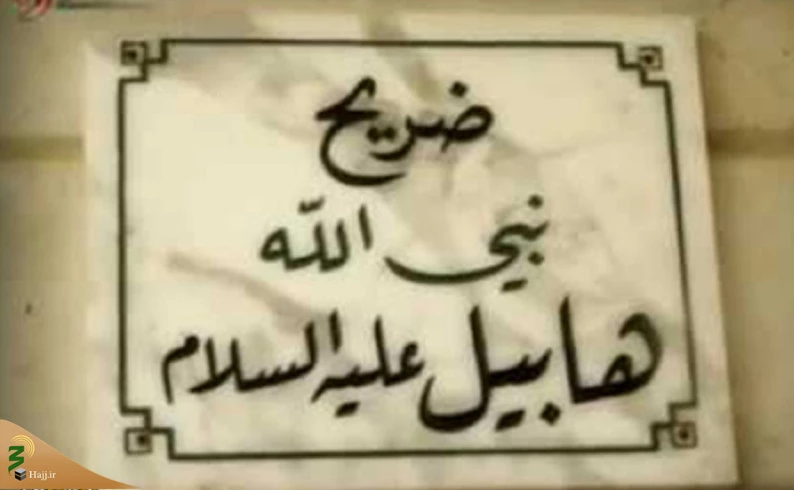 ضريح
نبي الله
هابيل عليه السلام
Hajj.ir